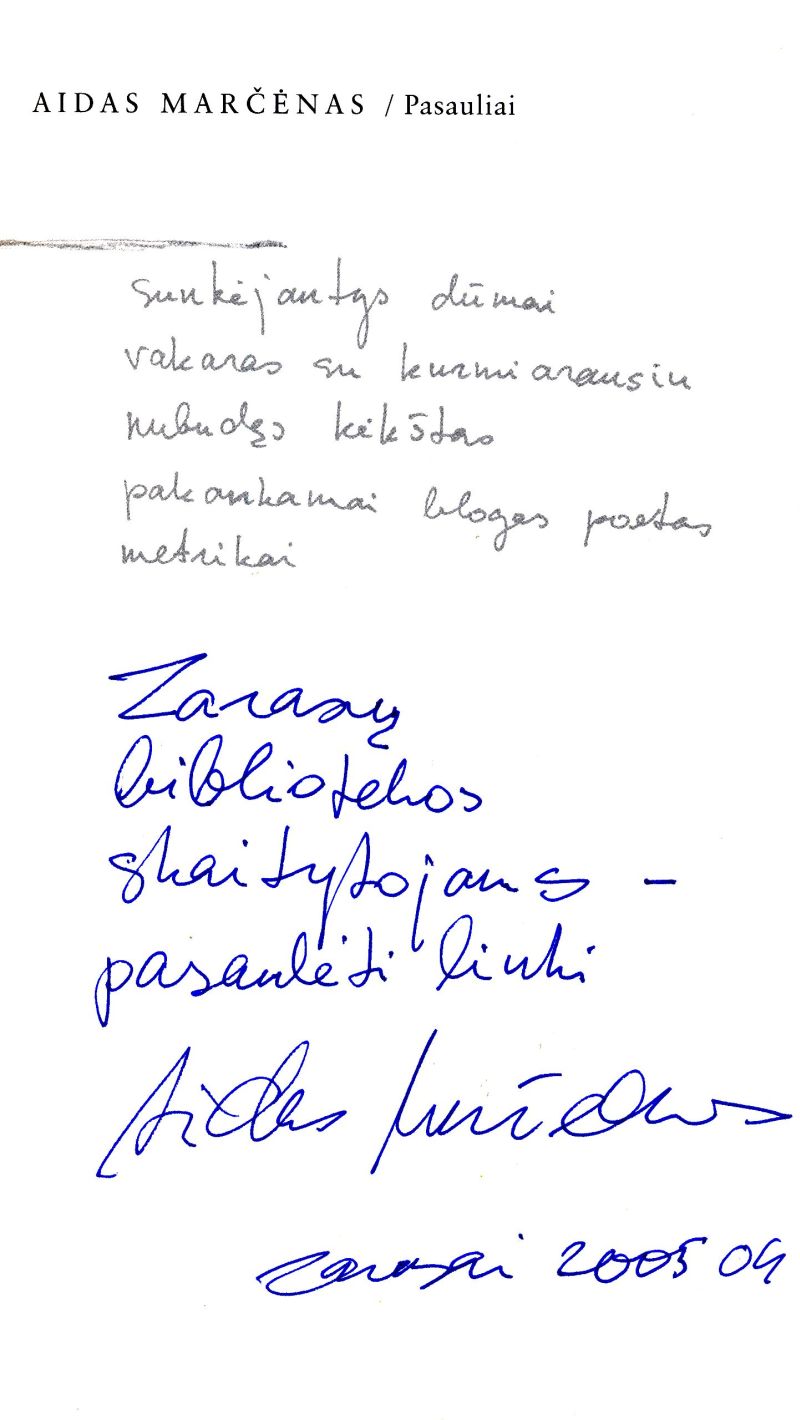 AIDAS MARČĖNAS / Pasauliai
sunkėjantys dūmai
vakaras su kurmiarausiu
nubudęs kėkštas
pakankamai blogas poetas
metrikai
Zarasų
bibliotekos
skaitytojams –
pasaulėti linki
Aidas Marčėnas
Zarasai 2005 04